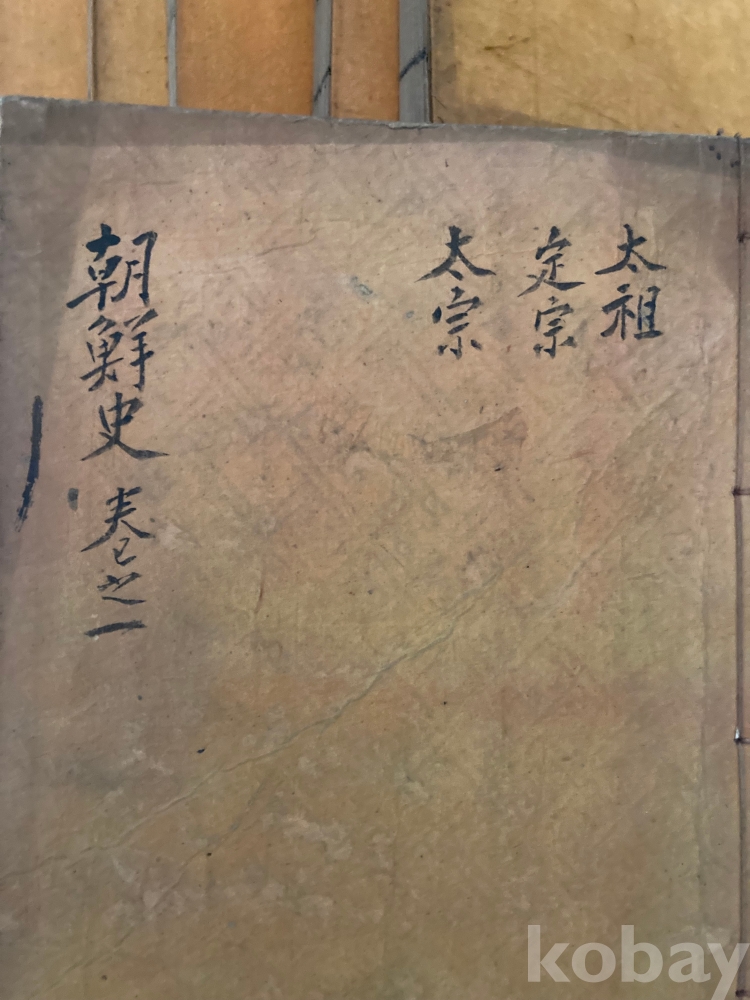 太祖
定宗
太宗
朝鮮史 卷之一
kobay